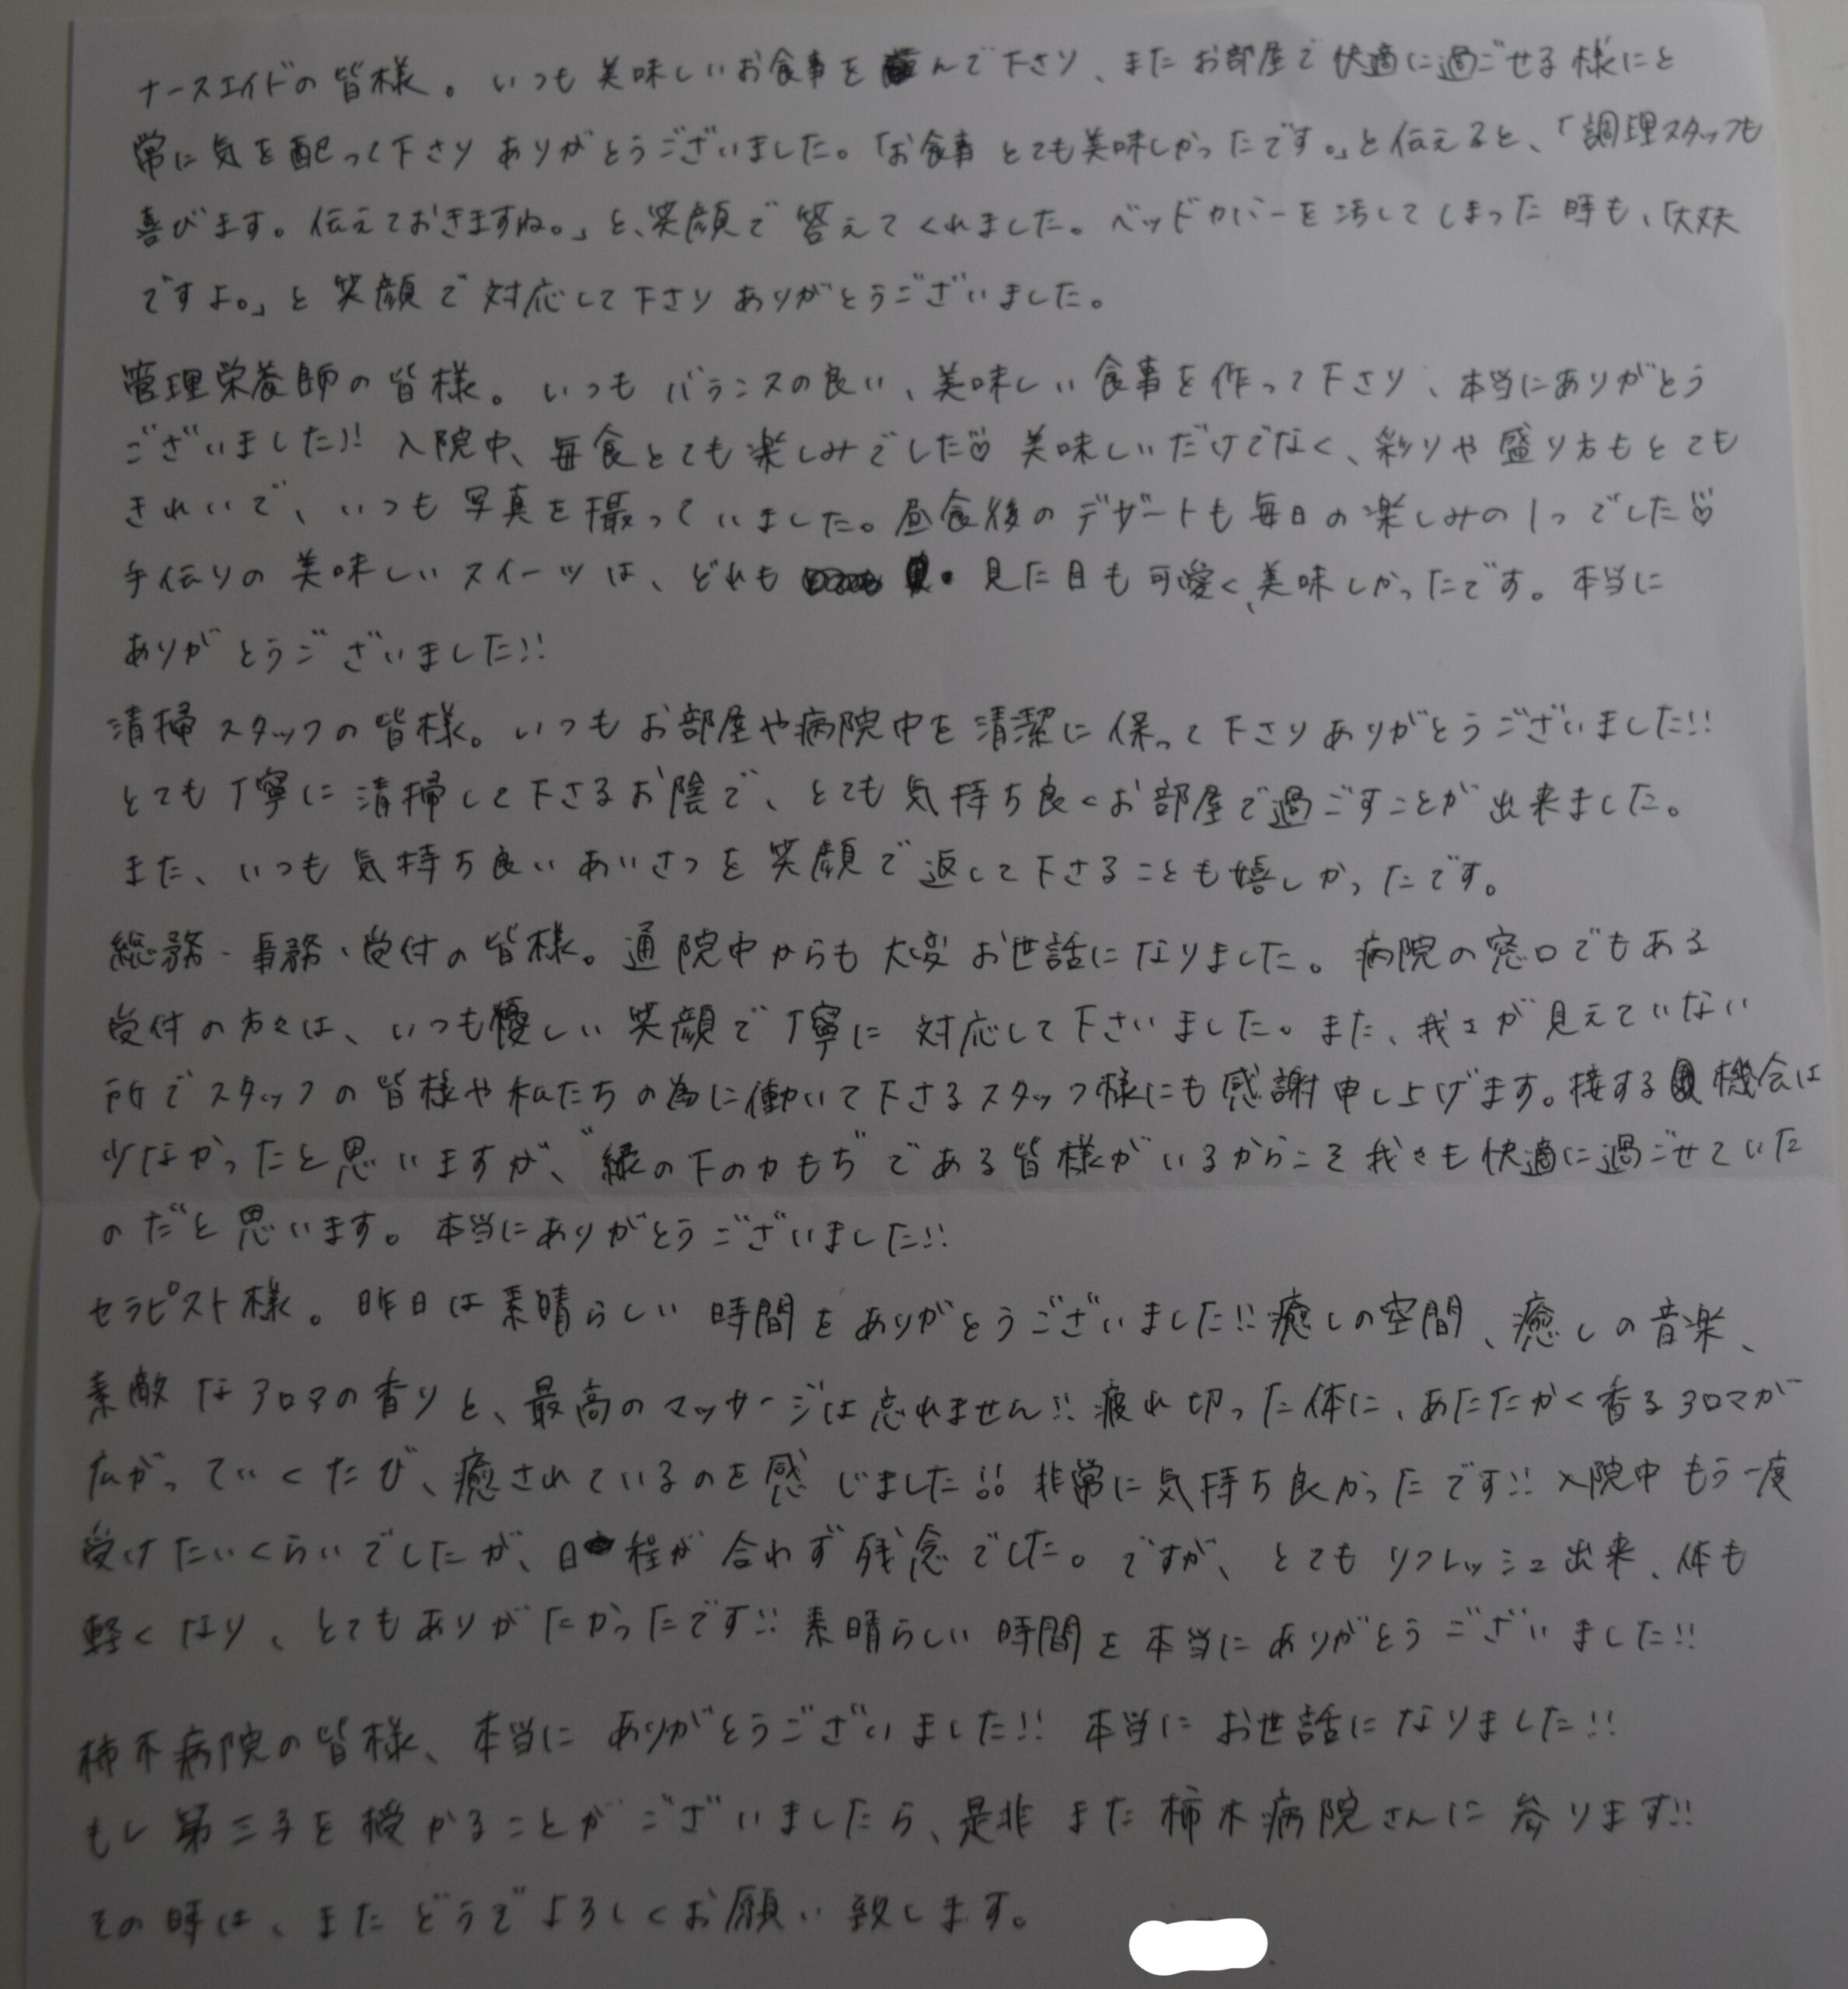 ナースエイドの皆様。いつも美味しいお食事を運んで下さり、またお部屋で快適に過ごせる様にと
常に気を配って下さりありがとうございました。「お食事とても美味しかったです。」と伝えると、「調理スタッフも
喜びます。伝えておきますね。」と、笑顔で答えてくれました。ベッドカバーを汚してしまった時も、「大丈夫
ですよ。」と笑顔で対応して下さりありがとうございました。
管理栄養師の皆様。いつもバランスの良い、美味しい食事を作って下さり、本当にありがとう
ございました!! 入院中、毎食とても楽しみでした♡ 美味しいだけでなく、彩りや盛り方もとても
きれいで、いつも写真を撮っていました。昼食後のデザートも毎日の楽しみの1つでした♡
手伝りの美味しいスイーツは、どれも見た目も可愛く、美味しかったです。本当に
ありがとうございました!!
清掃スタッフの皆様。いつもお部屋や病院中を清潔に保って下さりありがとうございました!!
とても丁寧に清掃して下さるお陰で、とても気持ち良くお部屋で過ごすことが出来ました。
また、いつも気持ち良いあいさつを笑顔で返して下さることも嬉しかったです。
総務・事務・受付の皆様。通院中からも大変お世話になりました。病院の窓口でもある
受付の方々は、いつも優しい笑顔で丁寧に対応して下さいました。また、我々が見えていない
所でスタッフの皆様や私たちの為に働いて下さるスタッフ様にも感謝申し上げます。接する機会は
少なかったと思いますが、"縁の下の力もち"である皆様がいるからこそ我々も快適に過ごせていた
のだと思います。本当にありがとうございました!!
セラピスト様。昨日は素晴らしい時間をありがとうございました!! 癒しの空間、癒しの音楽、
素敵なアロマの香りと、最高のマッサージは忘れません!! 疲れ切った体に、あたたかく香るアロマが
広がっていくたび、癒されているのを感じました!! 非常に気持ち良かったです!! 入院中もう一度
受けたいくらいでしたが、日程が合わず残念でした。ですが、とてもリフレッシュ出来、体も
軽くなり、とてもありがたかったです!! 素晴らしい時間を本当にありがとうございました!!
柿木病院の皆様、本当にありがとうございました!! 本当にお世話になりました!!
もし第三子を授かることがございましたら、是非また柿木病院さんに参ります!!
その時は、またどうぞよろしくお願い致します。